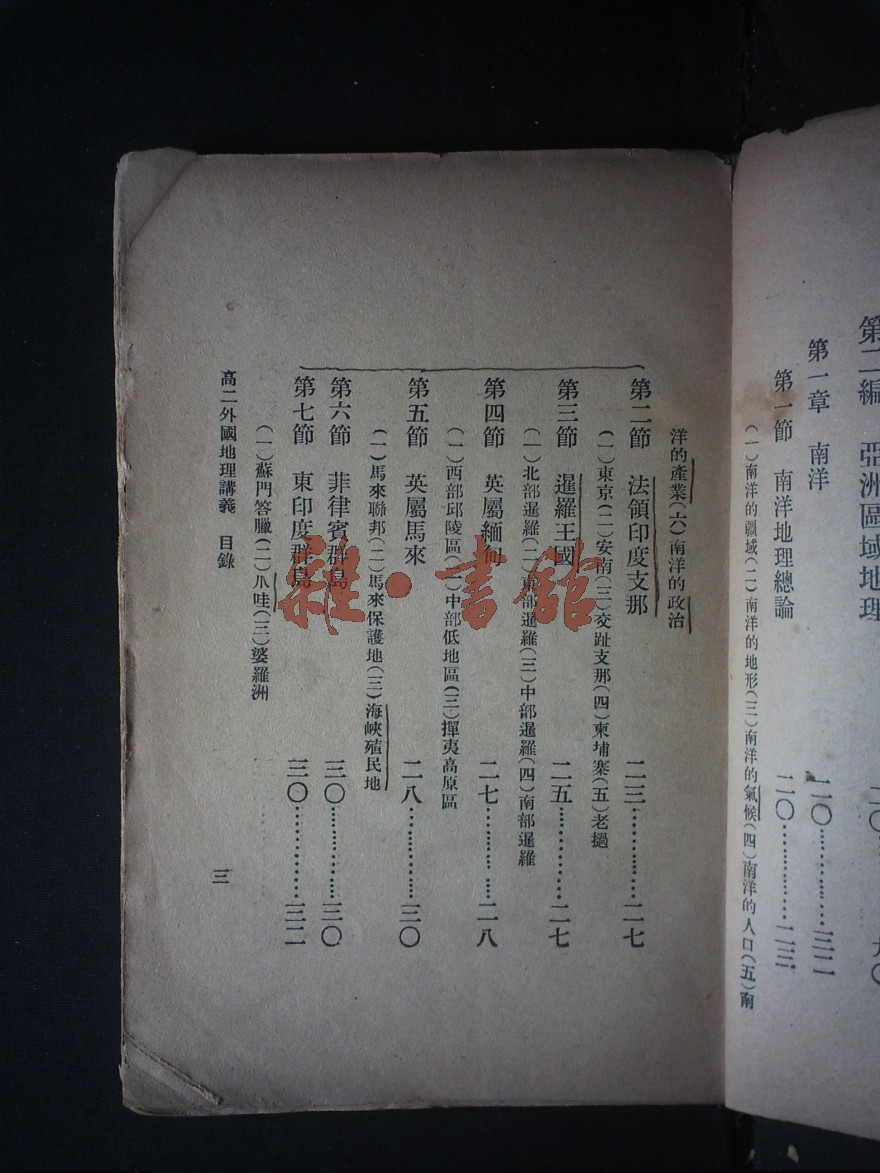 第二編　亞洲區域地理
第一章　南洋　二〇……………三二
第一節　南洋地理總論　二〇……………二三
（一）南洋的疆域（二）南洋的地形（三）南洋的氣候（四）南洋的人口（五）南
洋的產業（六）南洋的政治
第二節　法領印度支那　二三……………二七
（一）東京（二）安南（三）交趾支那（四）柬埔寨（五）老撾
第三節　暹羅王國　二五……………二七
（一）北部暹羅（二）東部暹羅（三）中部暹羅（四）南部暹羅
第四節　英屬緬甸　二七……………二八
（一）西部邱陵區（二）中部低地區（三）撣夷高原區
第五節　英屬馬來　二八……………三〇
（一）馬來聯邦（二）馬來保護地（三）海峽殖民地
第六節　菲律賓群島　三〇……………三〇
第七節　東印度群島　三〇……………三二
（一）蘇門答臘（二）爪哇（三）婆羅洲
高二外國地理講義　目錄
三
雜·書館